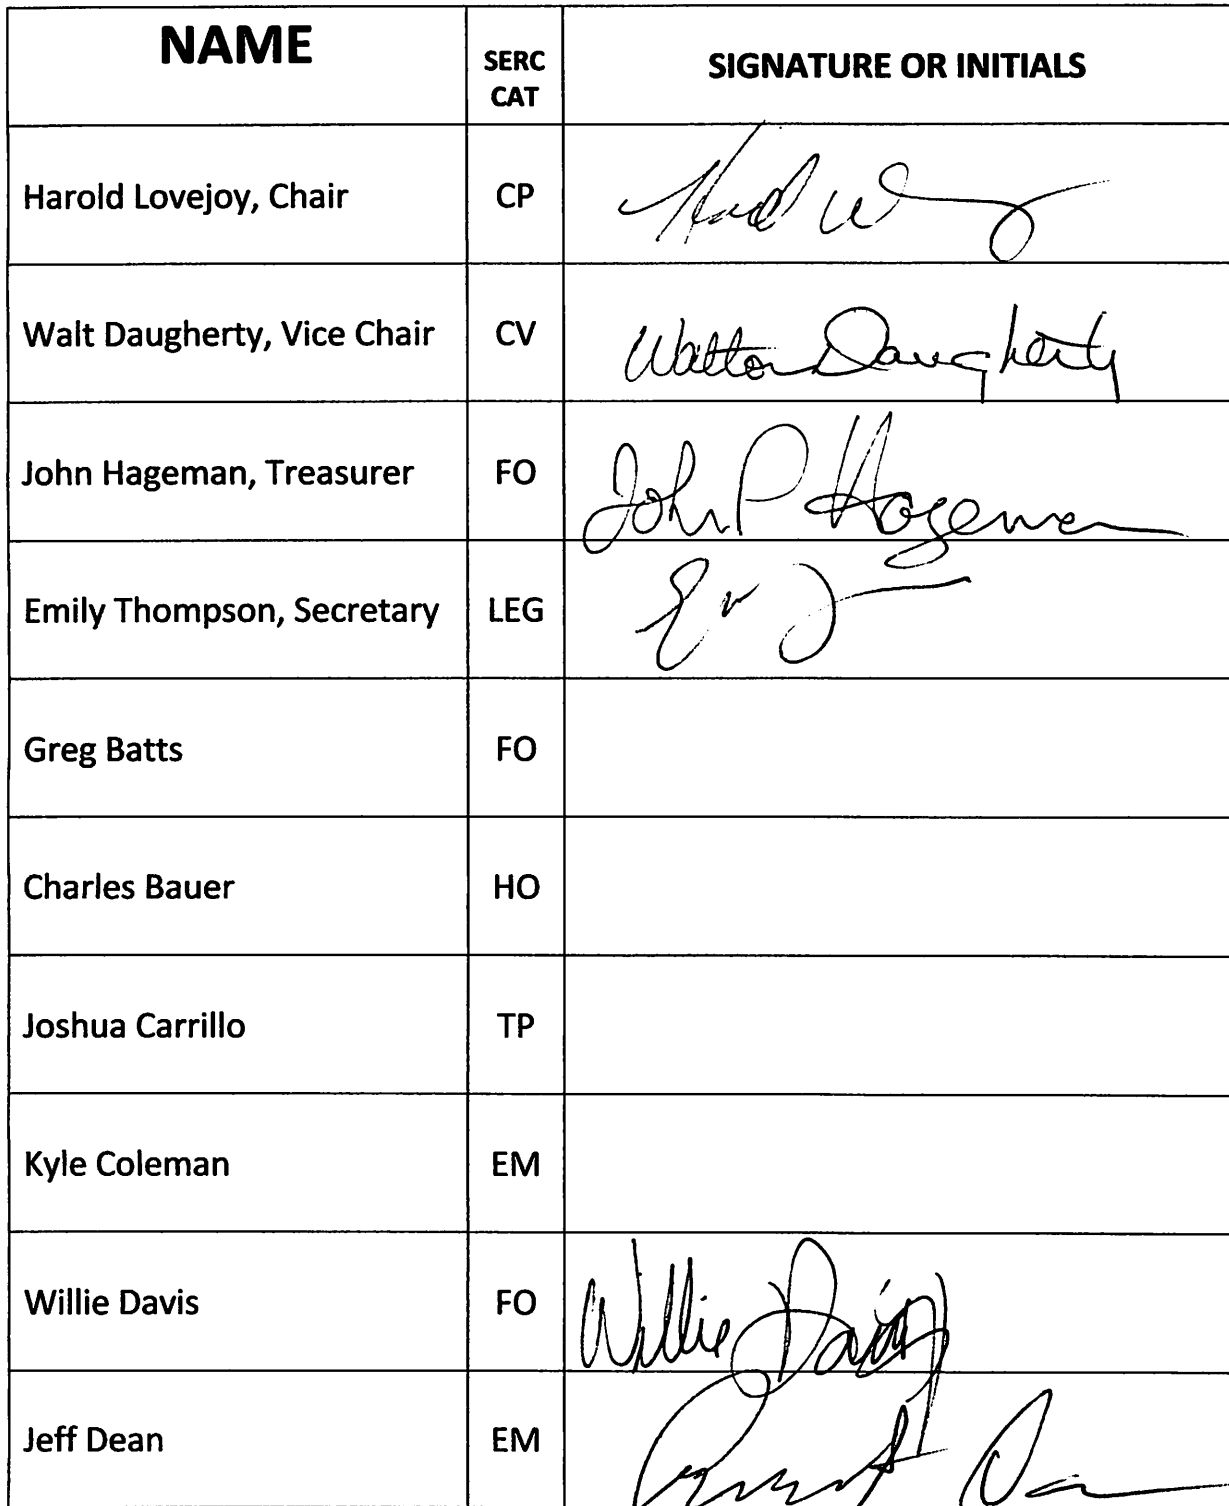 NAME SERC CAT SIGNATURE OR INITIALS
Harold Lovejoy, Chair CP
Walt Daugherty, Vice Chair CV Walton Daugherty
John Hageman, Treasurer FO John P Hageman
Emily Thompson, Secretary LEG
Greg Batts FO
Charles Bauer HO
Joshua Carrillo TP
Kyle Coleman EM
Willie Davis FO Willie Davis
Jeff Dean EM